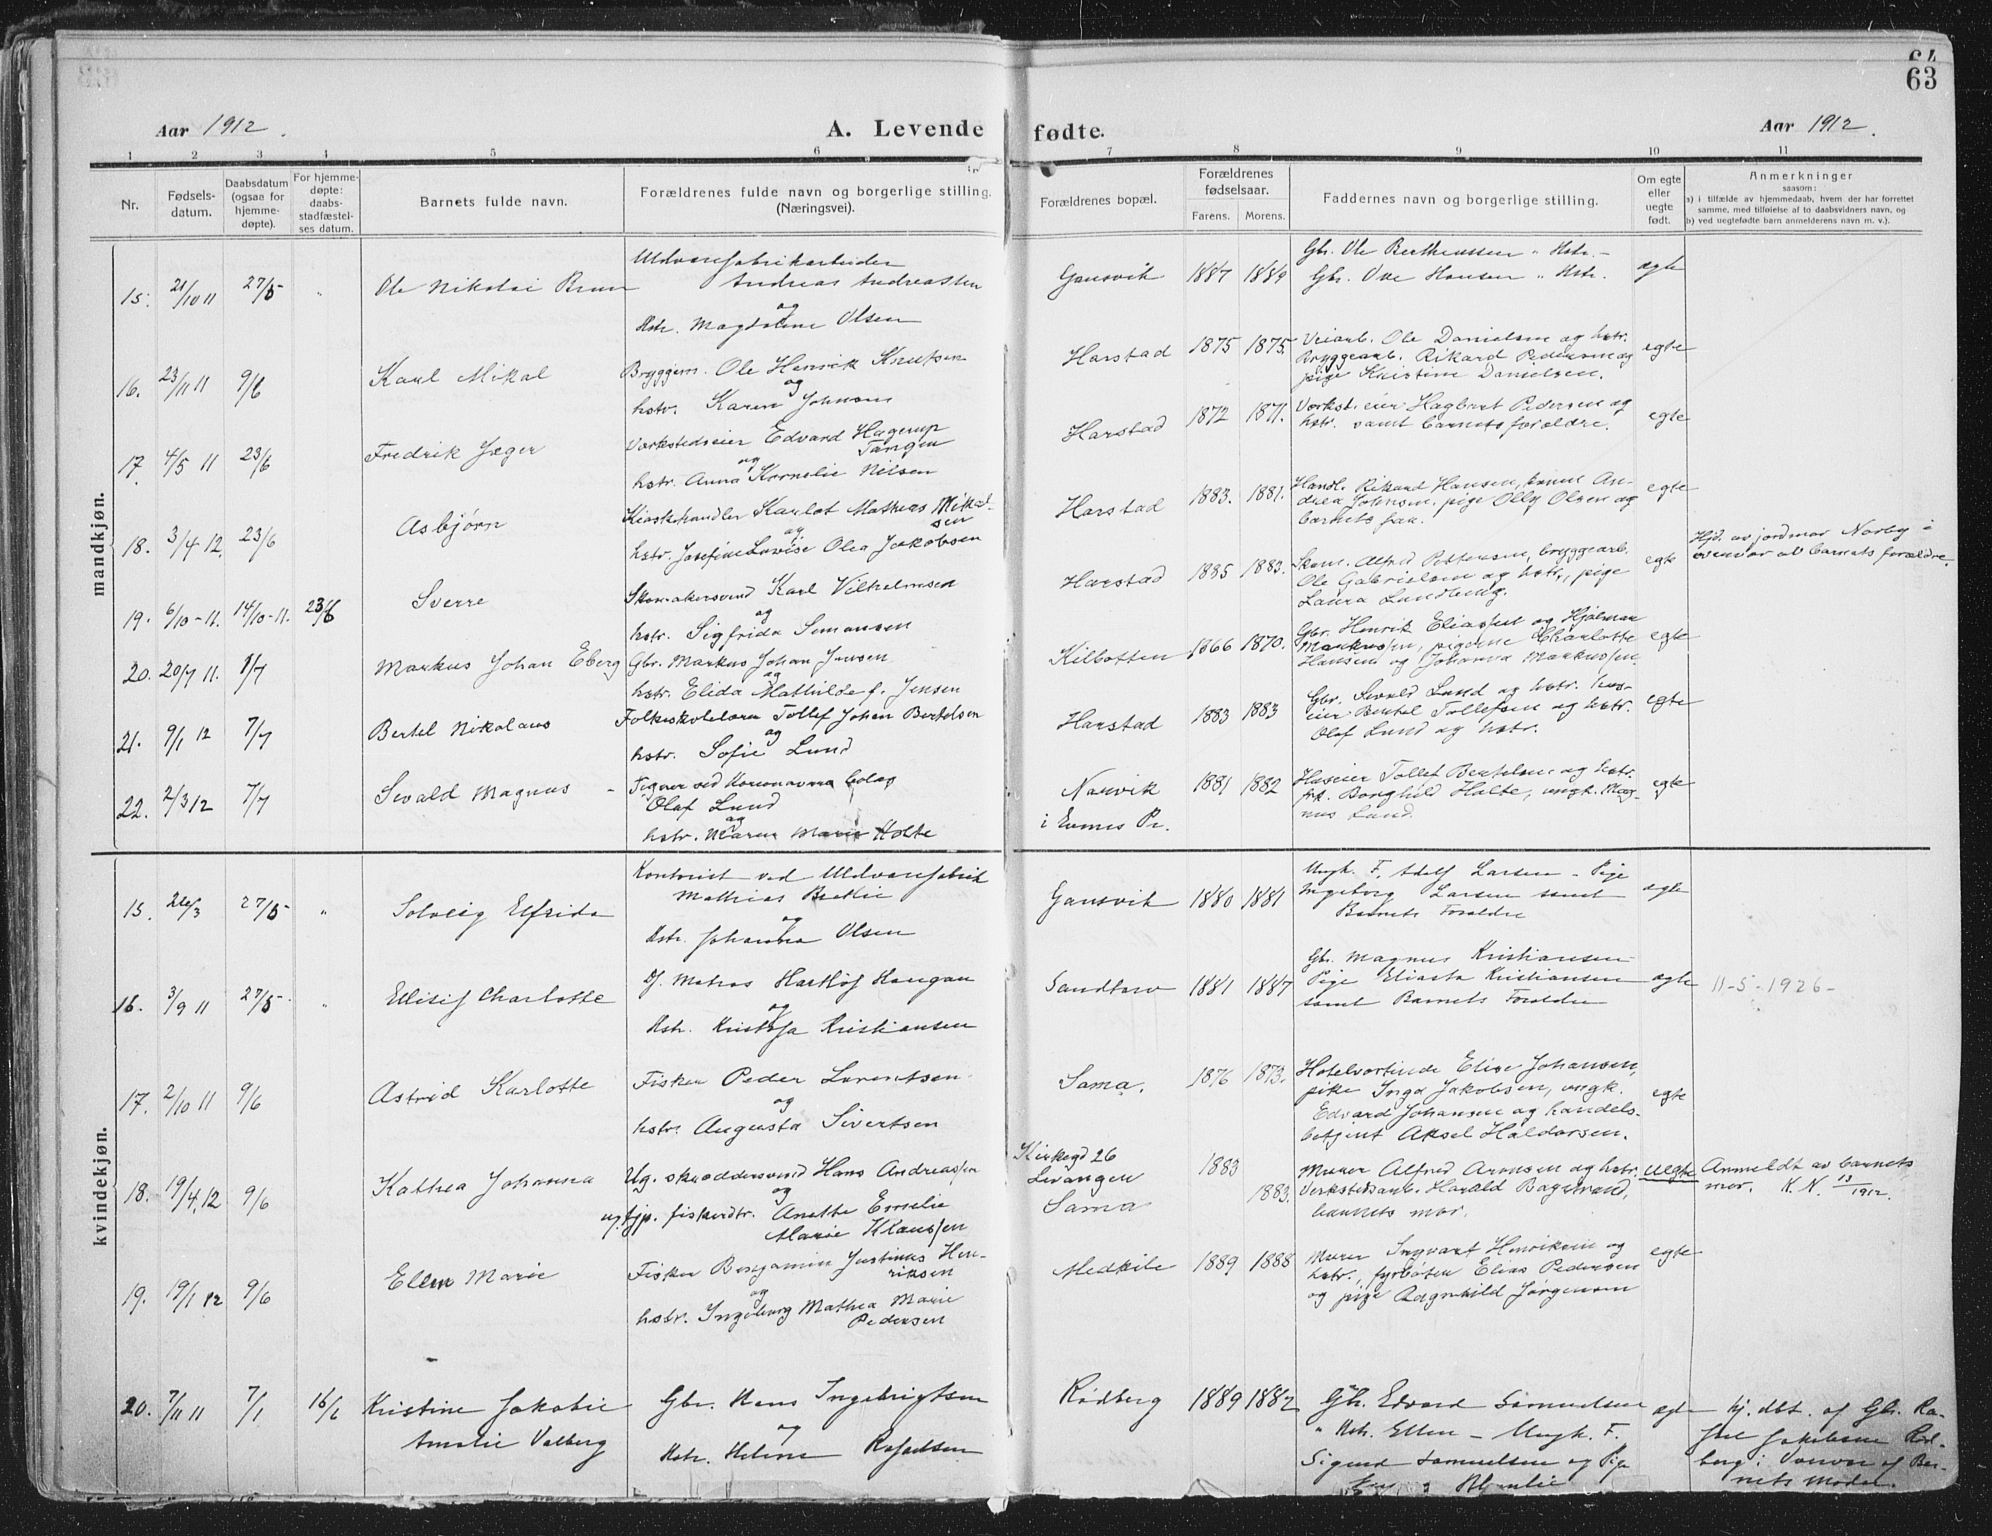 64
63
Aar 1912.
A. Levende fødte.
Aar 1912.
1 2 3 4 5 6 7 8 9 10 11
Nr.
Fødsels-
datum.
Daabsdatum
(ogsaa for
hjemme-
døpte).
For hjemme-
døpte:
daabs-
stadfæstel-
ses datum.
Barnets fulde navn.
Forældrenes fulde navn og borgerlige stilling.
(Næringsvei).
Forældrenes bopæl.
Forældrenes
fødselsaar.
Farens. Morens.
Faddernes navn og borgerlige stilling.
Om egte
eller
uegte
født.
Anmerkninger
saasom:
a) i tilfælde av hjemmedaab, hvem der har forrettet
samme, med tilføielse af to daabsvidners navn, og
b) ved uegtefødte barn anmelderens navn m. v.).
mandkjøn.
15. 21/10 11 27/5 " Ole Nikolai Brun
Uldvarefabrikarbeider
Andreas Andreassen
og
Hstr. Magdalene Olsen
Gansvik 1887 1889
Gbr. Ole Bertheussen " Hstr. -
Gbr. Ove Hansen " Hstr.
egte
16. 23/11 11 9/6 Karl Mikal
Bryggem. Ole Henrik Knutsen
og
hstr. Karen Johnsen
Harstad 1875 1875.
Veiarb. Ole Danielsen og hstr.
Bryggearb. Rikard Pedersen og
pige Kristine Danielsen.
egte
17. 4/5 11 23/6 Fredrik Jæger
Verkstedseier Edvard Hagerup
Tangen
og
hstr. Anna Kornelie Nilsen
Harstad 1872 1871.
Verkst.eier Hagbart Pedersen og
hstr. samt barnets forældre.
egte
18. 3/4 12. 23/6 Asbjørn
Kioskhandler Karlot Mathias Mikal-
sen
og
hstr. Josefine Lovise Olea Jakobsen
Harstad 1883. 1881.
Handl. Rikard Hansen, kone An-
drea Johnsen, pige Olly Olsen og
barnets far.
egte
19. 6/10-11. 14/10-11. 23/6 Sverre
Skomakersvend Karl Vilhelmsen
og
hstr. Sigfrida Simonsen
Harstad 1885 1883.
Skom. Alfred Pettersen, bryggearb.
Ole Gabrielsen og hstr., pige
Laura Lundberg.
egte
Hjd. av jordmor Norby i
nærvær av barnets forældre.
20. 20/7 11. 1/7 Markus Johan Eberg
Gbr. Markus Johan Jensen
og
hstr. Elida Mathilde f. Jensen
Kilbotten 1866 1870.
Gbr. Henrik Eliassen og Hjalmar
Markussen, pigerne Charlotte
Hansen og Johanna Markussen
egte
21. 9/1 12 7/7 Bertel Nikolaus
Folkeskolelærer Tollef Johan Bertelsen
og
hstr. Sofie Lund
Harstad 1883 1883
Gbr. Sivald Lund og hstr. hus-
eier Bertel Tollefsen og hstr.
Olaf Lund og hstr.
egte
22. 2/3 12 7/7 Sivald Magnus -
Olaf Lund
og
hstr. Maren Marie Holte
Narvik
i Evenes Pr.
1881 1882
Huseier Tollef Bertelsen og hstr.
frk. Borghild Holte, ungk. Mag-
nus Lund.
egte
kvindekjøn.
15. 26/3 27/5 " Solveig Elfrida
Kontorist ved Uldvarefabrik
Mathias Bertlie
og
Hstr. Johanna Olsen
Gansvik 1880 1881
Ungk. F. Adolf Larsen - Pige
Ingeborg Larsen samt
Barnets Forældre
egte
16. 3/9 11 27/5 " Ellisif Charlotte
Df. Matros Hartløf Haugan
og
Hstr. Kristofa Kristiansen
Sandtorv 1881 1887
Gbr. Magnus Kristiansen
Pige Eliasta Kristiansen
samt Barnets Forældre
egte
11-5-1926-
17. 2/10 11 9/6 Astrid Karlotte
Fisker Peder Lorentsen
og
hstr. Augusta Sivertsen
Sama. 1876 1873.
Hotelvertinde Elise Johansen,
pike Inga Jakobsen, ungk.
Edvard Johansen og handels-
betjent Aksel Haldorsen.
egte
18. 19/4 12 9/6 Kathea Johanna
Ug. skræddersvend Hans Andreassen
og
ug. fjp. fiskerdtr. Anette Emelie
Marie Klaussen
Kirkegd 26
Levangen
Sama
1883 1883.
Murer Alfred Arntsen og hstr.
Verkstedsarb. Harald Bagstrand,
barnets mor.
uegte
Anmeldt av barnets
mor. K. N. 13/1912.
19. 19/1 12 9/6 Ellen Marie
Fisker Benjamin Justinus Hen-
riksen
og
hstr. Ingeborg Mathea Marie
Pedersen
Medkile 1889 1888
Murer Ingvart Henriksen og
hstr., fyrbøter Elias Pedersen
og pige Ragnhild Jørgensen
egte
20. 7/11 11 7/1 16/6 Kristine Jakobie
Amalie Valberg
Gbr. Hans Ingebrigtsen
og
Hstr. Heline Rafaelsen
Rødberg 1889 1882
Gbr. Edvard Samuelsen
" Hstr. Ellen - Ungk. F.
Sigurd Samuelsen og Pige
egte
Hj. dbt. af Gbr. Ra-
fael Jakobsen Rød-
berg i Nærvær af Bar-
nets Moder.